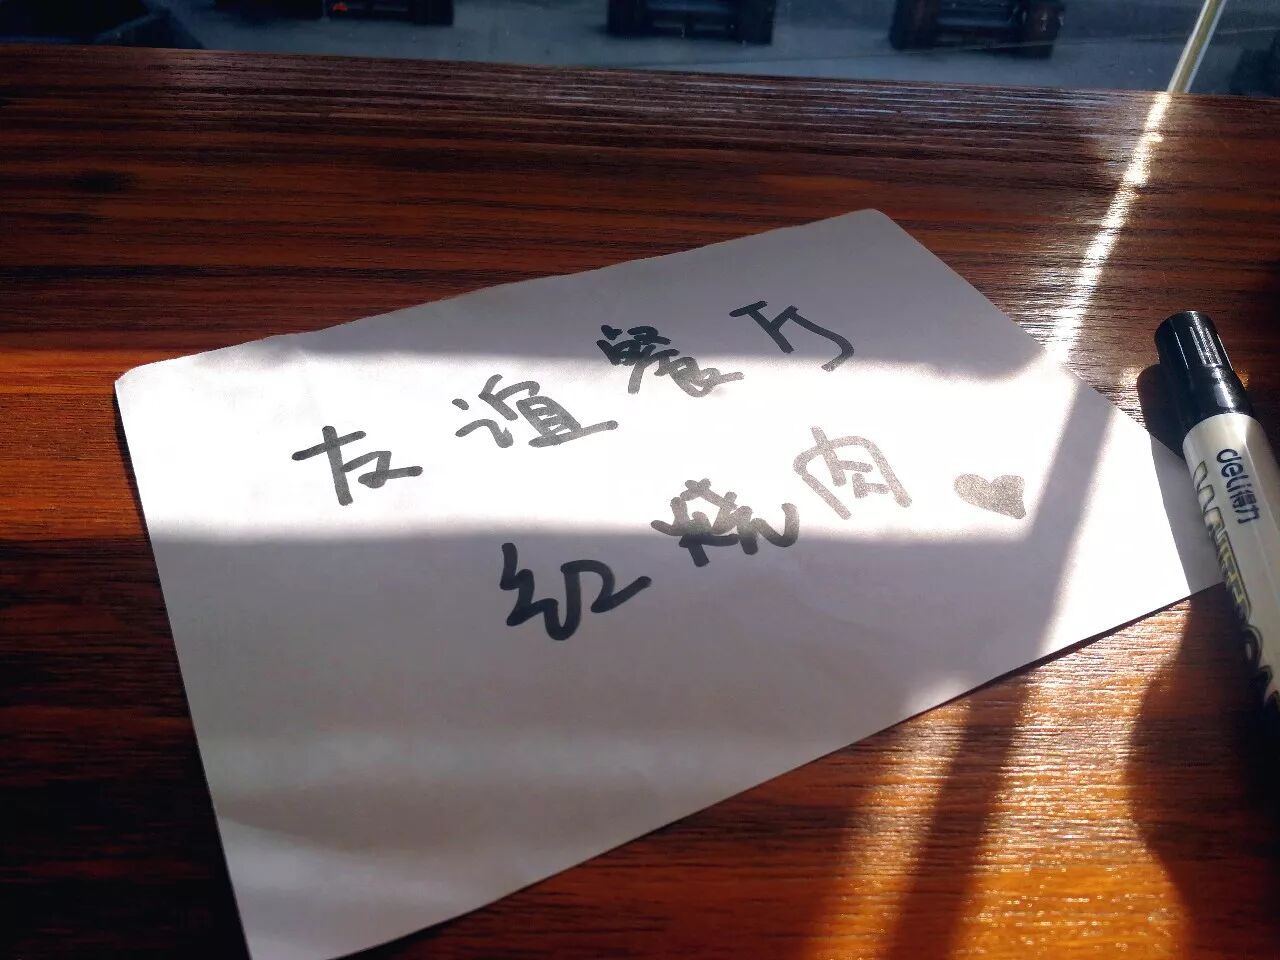 友谊餐厅
红烧肉
deli得力